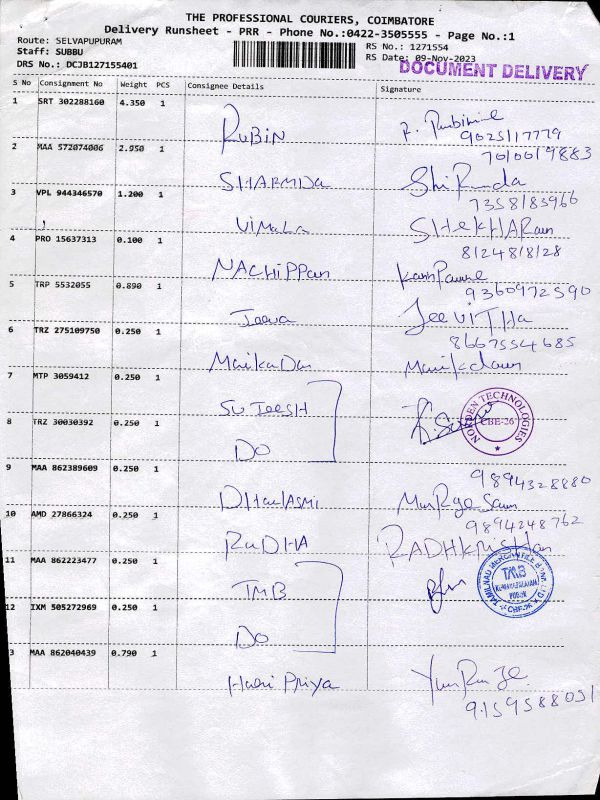 THE PROFESSIONAL COURIERS, COIMBATORE
Delivery Runsheet - PRR - Phone No.:0422-3505555 - Page No.:1
Route: SELVAPUPURAM
RS No.: 1271554
Staff: SUBBU
RS Date: 09-Nov-2023
DRS No.: DCJB127155401
DOCUMENT DELIVERY
S No Consignment No Weight PCS Consignee Details Signature
1 SRT 302288160 4.350 1 RUBIN
9025117779
2 MAA 572074006 2.950 1 SHARMIDa
7010019883
3 VPL 944346570 1.200 1 VIMALa SHEKHARan
7358183966
4 PRO 15637313 0.100 1 NACHIPPan
8124818128
5 TRP 5532055 0.890 1 JeeVITHa
9360972590
6 TRZ 275109750 0.250 1 ManikaDan Manikdan
8667554685
7 MTP 3059412 0.250 1 SUJEESH
NORDEN TECHNOLOGIES
CBE-26
8 TRZ 30030392 0.250 1 DO
9 MAA 862389609 0.250 1
9894328880
10 AMD 27866324 0.250 1 RADHA
9894248762
11 MAA 862223477 0.250 1 TMB
TAMILNAD MERCANTILE BANK LTD
TMB
12 IXM 505272969 0.250 1 DO
3 MAA 862040439 0.790 1 Hari Priya
9159588031